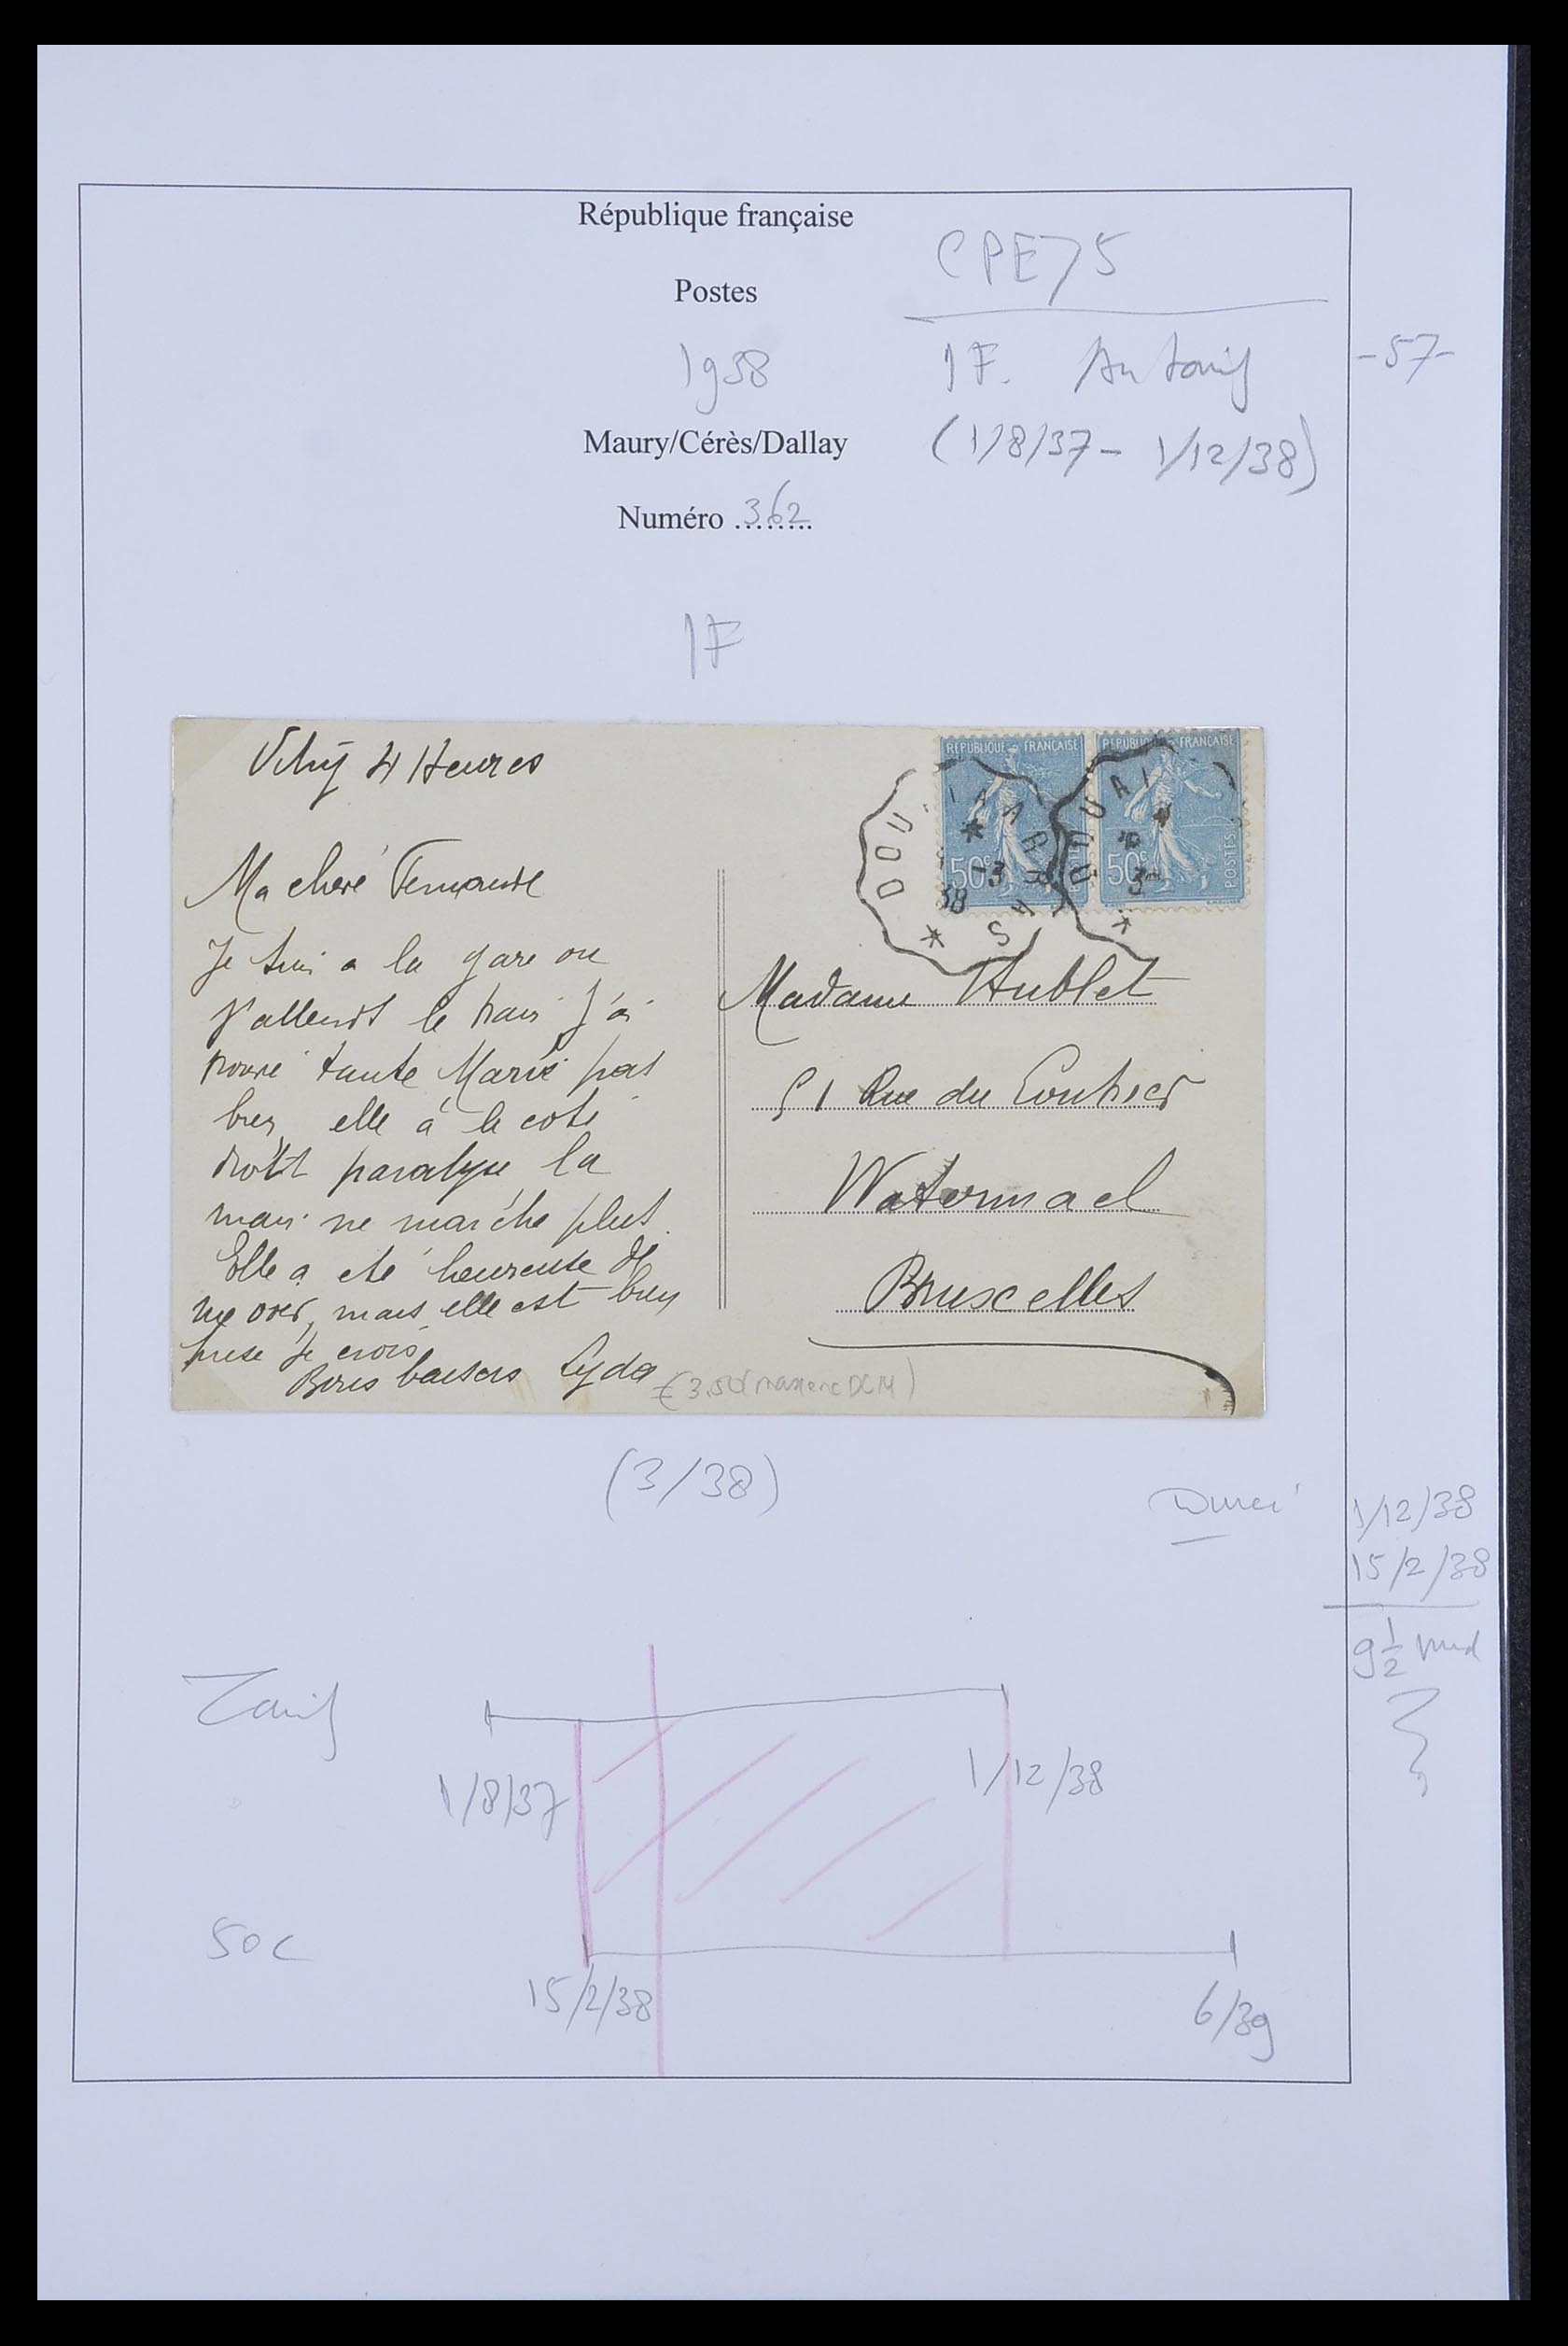 République française
CPE75
Postes
1938
1F. Au tarif
-57-
Maury/Cérès/Dallay
(1/8/37 - 1/12/38)
Numéro ........
362
1F
Vitry 4 Heures
Ma cheré Fernande
Je suis a la gare ou
j'attends le train j'ai
trouvé tante Marie pas
bien, elle à le coté
droit paralyse la
main ne marche plus.
Elle a eté heureuse de
me voir, mais elle est bien
prise je crois
Bons baisers Lyda
REPUBLIQUE FRANÇAISE
50c
POSTES
REPUBLIQUE FRANÇAISE
50c
POSTES
DOUAI A ARRAS
-3
38
DOUAI
3
Madame Hublet
51 Rue du
Watermael
Bruxelles
(3/38)
Durée
1/12/38
15/2/38
9 1/2
Tarif
1/8/37
1/12/38
50c
15/2/38
6/39